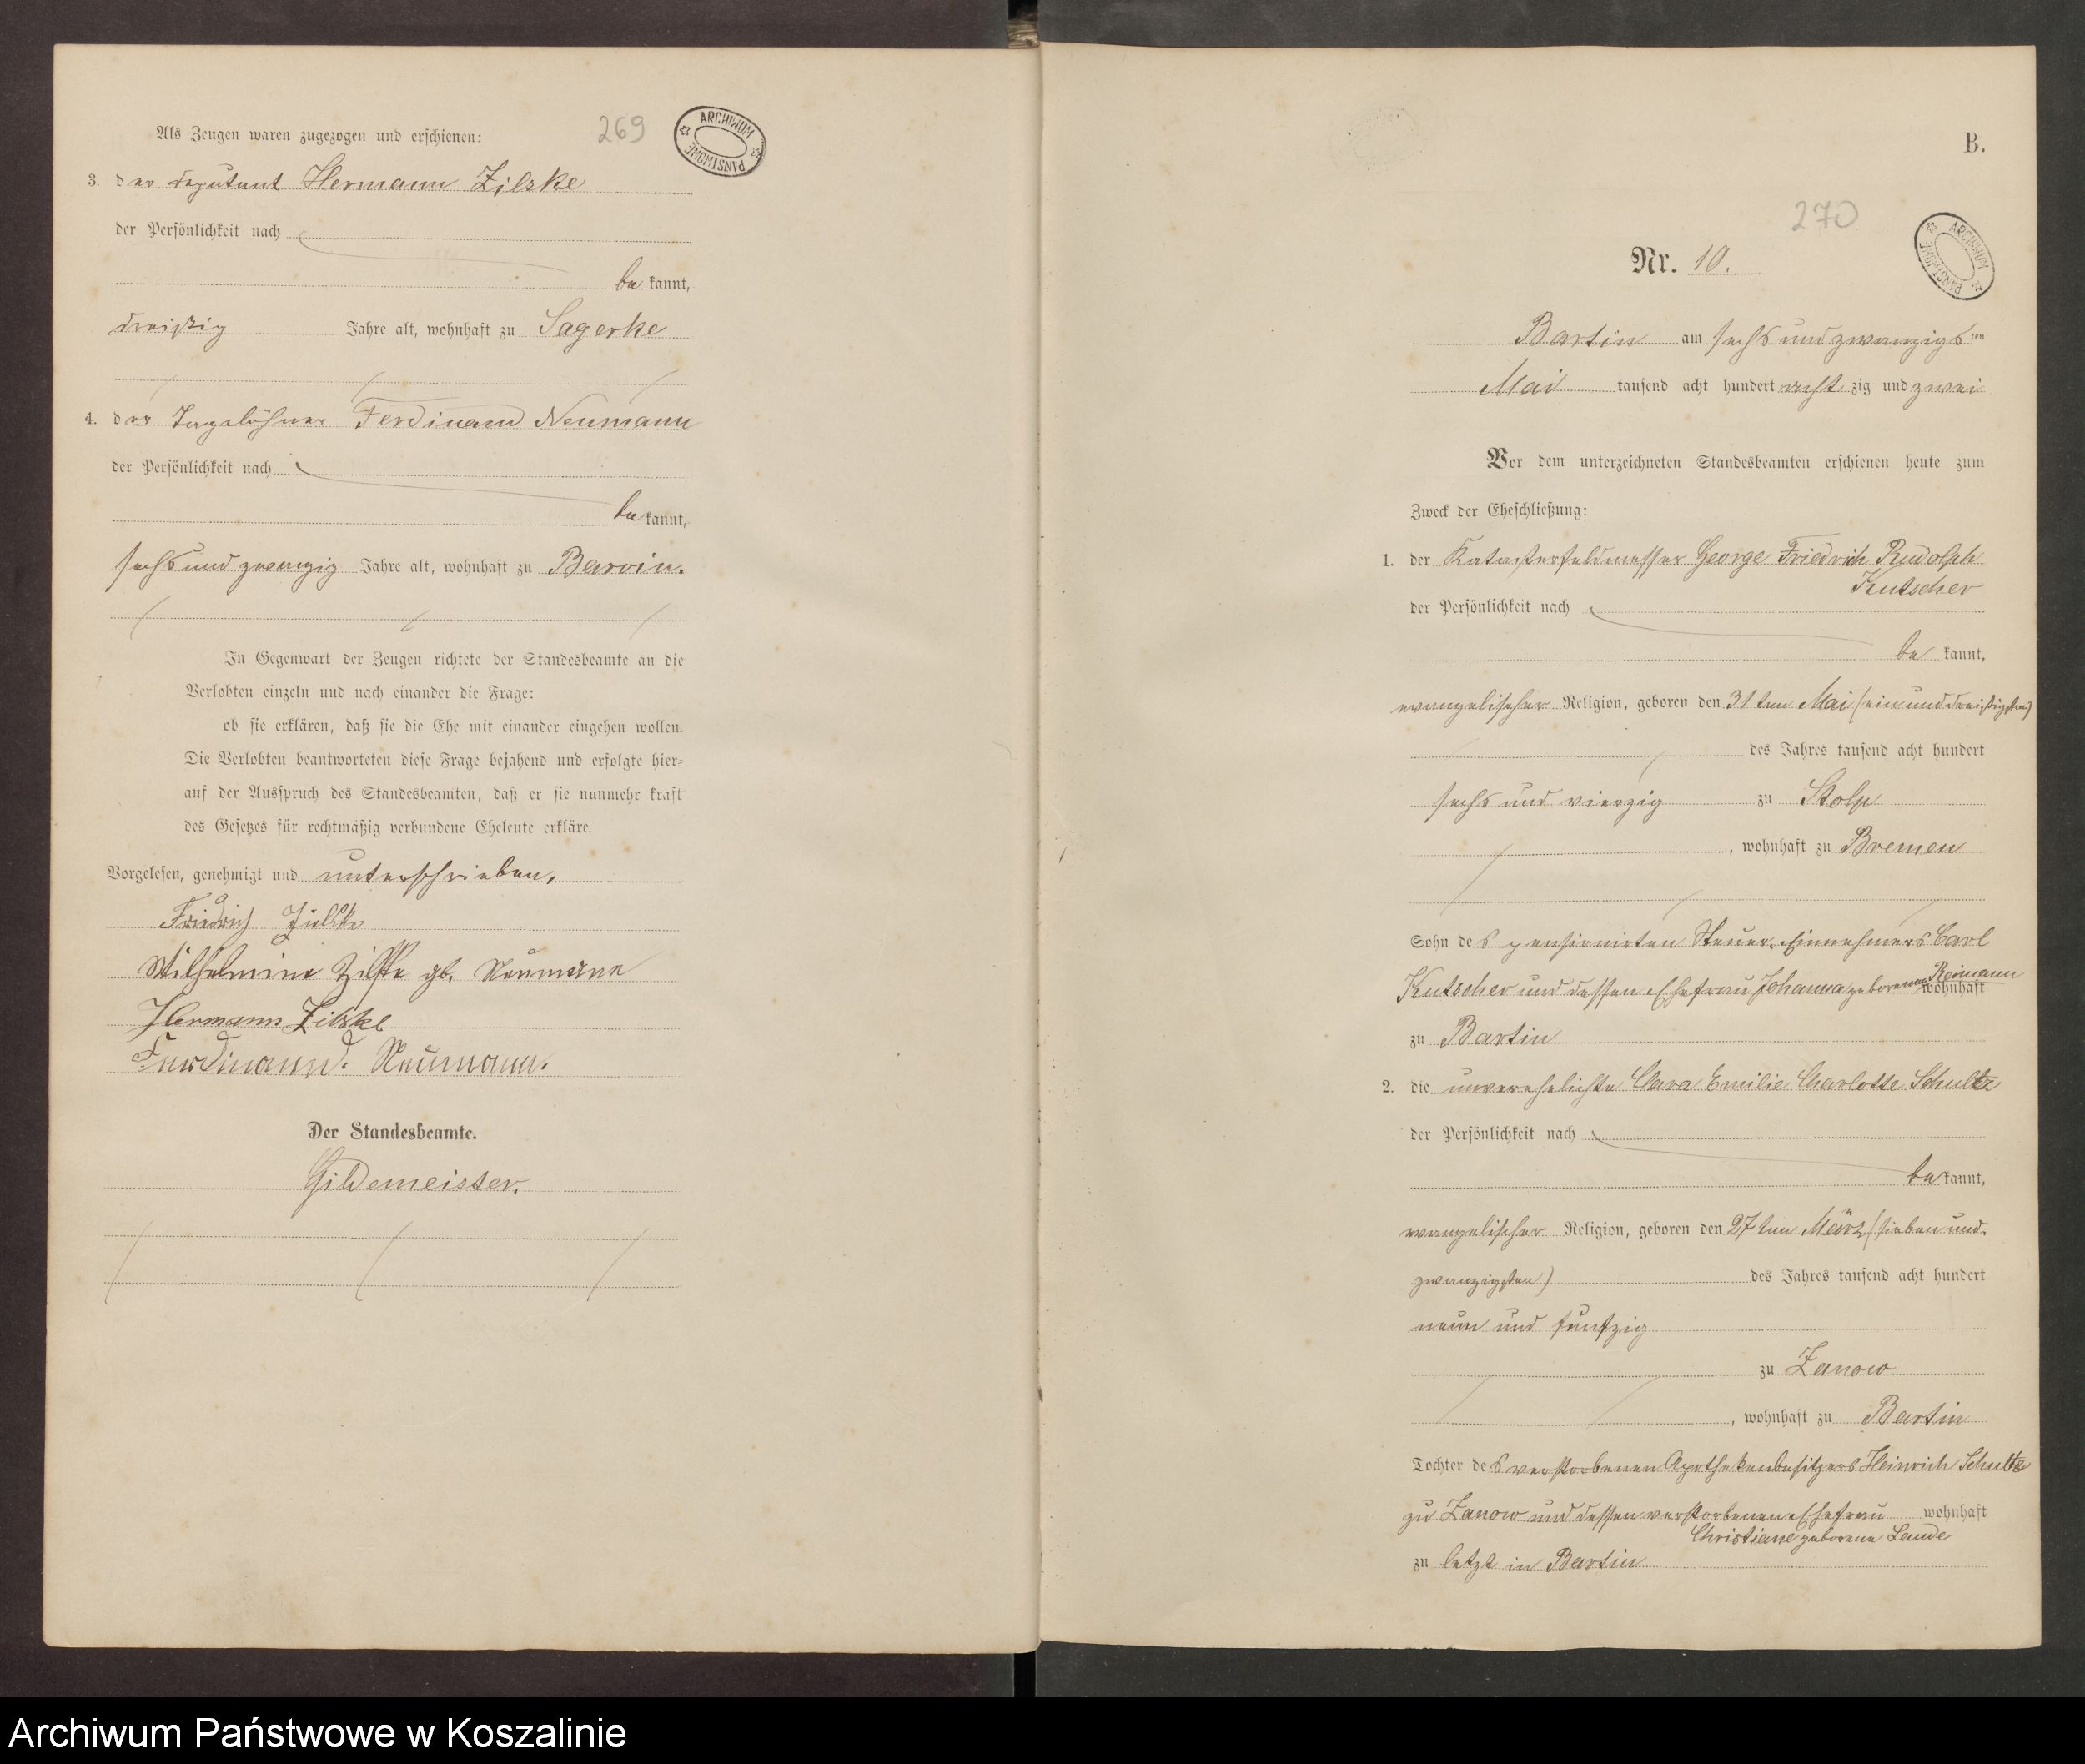 Als Zeugen waren zugezogen und erschienen:
269
ARCHIWUM PAŃSTWOWE
3. der Deputant Hermann Zilske
der Persönlichkeit nach
be kannt,
dreißig Jahre alt, wohnhaft zu Sagerke
4. der Tagelöhner Ferdinand Neumann
der Persönlichkeit nach
be kannt,
sechs und zwanzig Jahre alt, wohnhaft zu Barvin.
In Gegenwart der Zeugen richtete der Standesbeamte an die
Verlobten einzeln und nach einander die Frage:
ob sie erklären, daß sie die Ehe mit einander eingehen wollen.
Die Verlobten beantworteten diese Frage bejahend und erfolgte hier-
auf der Ausspruch des Standesbeamten, daß er sie nunmehr kraft
des Gesetzes für rechtmäßig verbundene Eheleute erkläre.
Vorgelesen, genehmigt und unterschrieben,
Friedrich Zielske
Wilhelmine Zilske gb. Neumann
Hermann Zilske
Ferdinand. Neumann.
Der Standesbeamte.
Gildemeister.
B.
270
ARCHIWUM PAŃSTWOWE
Nr. 10.
Bartin am sechs und zwanzigsten
Mai tausend acht hundert achtzig und zwei
Vor dem unterzeichneten Standesbeamten erschienen heute zum
Zweck der Eheschließung:
1. der Katasterfeldmesser George Friedrich Rudolph
Kutscher
der Persönlichkeit nach
be kannt,
evangelischer Religion, geboren den 31 ten Mai (ein und dreißigsten)
des Jahres tausend acht hundert
sechs und vierzig zu Stolp
, wohnhaft zu Bremen
Sohn des pensionirten Steuer-Einnehmers Carl
Kutscher und dessen Ehefrau Johanna geborenen Reimann wohnhaft
zu Bartin
2. die unverehelichte Clara Emilie Charlotte Schultz
der Persönlichkeit nach
be kannt,
evangelischer Religion, geboren den 27 ten März (sieben und-
zwanzigsten) des Jahres tausend acht hundert
neun und fünfzig
zu Zanow
, wohnhaft zu Bartin
Tochter des verstorbenen Apothekenbesitzers Heinrich Schultz
zu Zanow und dessen verstorbenen Ehefrau wohnhaft
Christiane geborene
zu letzt in Bartin
Archiwum Państwowe w Koszalinie